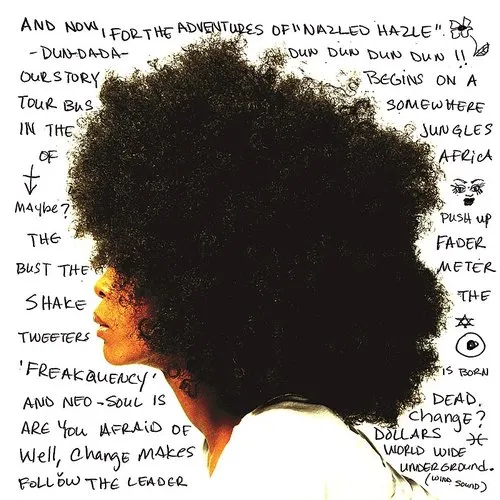 AND NOW, FOR THE ADVENTURES OF "NAZLED HAZLE".
-DUN-DADA- DUN DUN DUN DUN !!
OUR STORY BEGINS ON A
TOUR BUS SOMEWHERE
IN THE JUNGLES
OF AFRICA
MAYBE? PUSH UP
THE FADER
BUST THE METER
SHAKE THE
TWEETERS
'FREAKQUENCY' IS BORN
AND NEO-SOUL IS DEAD.
ARE YOU AFRAID OF Change?
Well, Change MAKES DOLLARS
FOLLOW THE LEADER WORLD WIDE
UNDERGROUND.
(WIND SOUND)